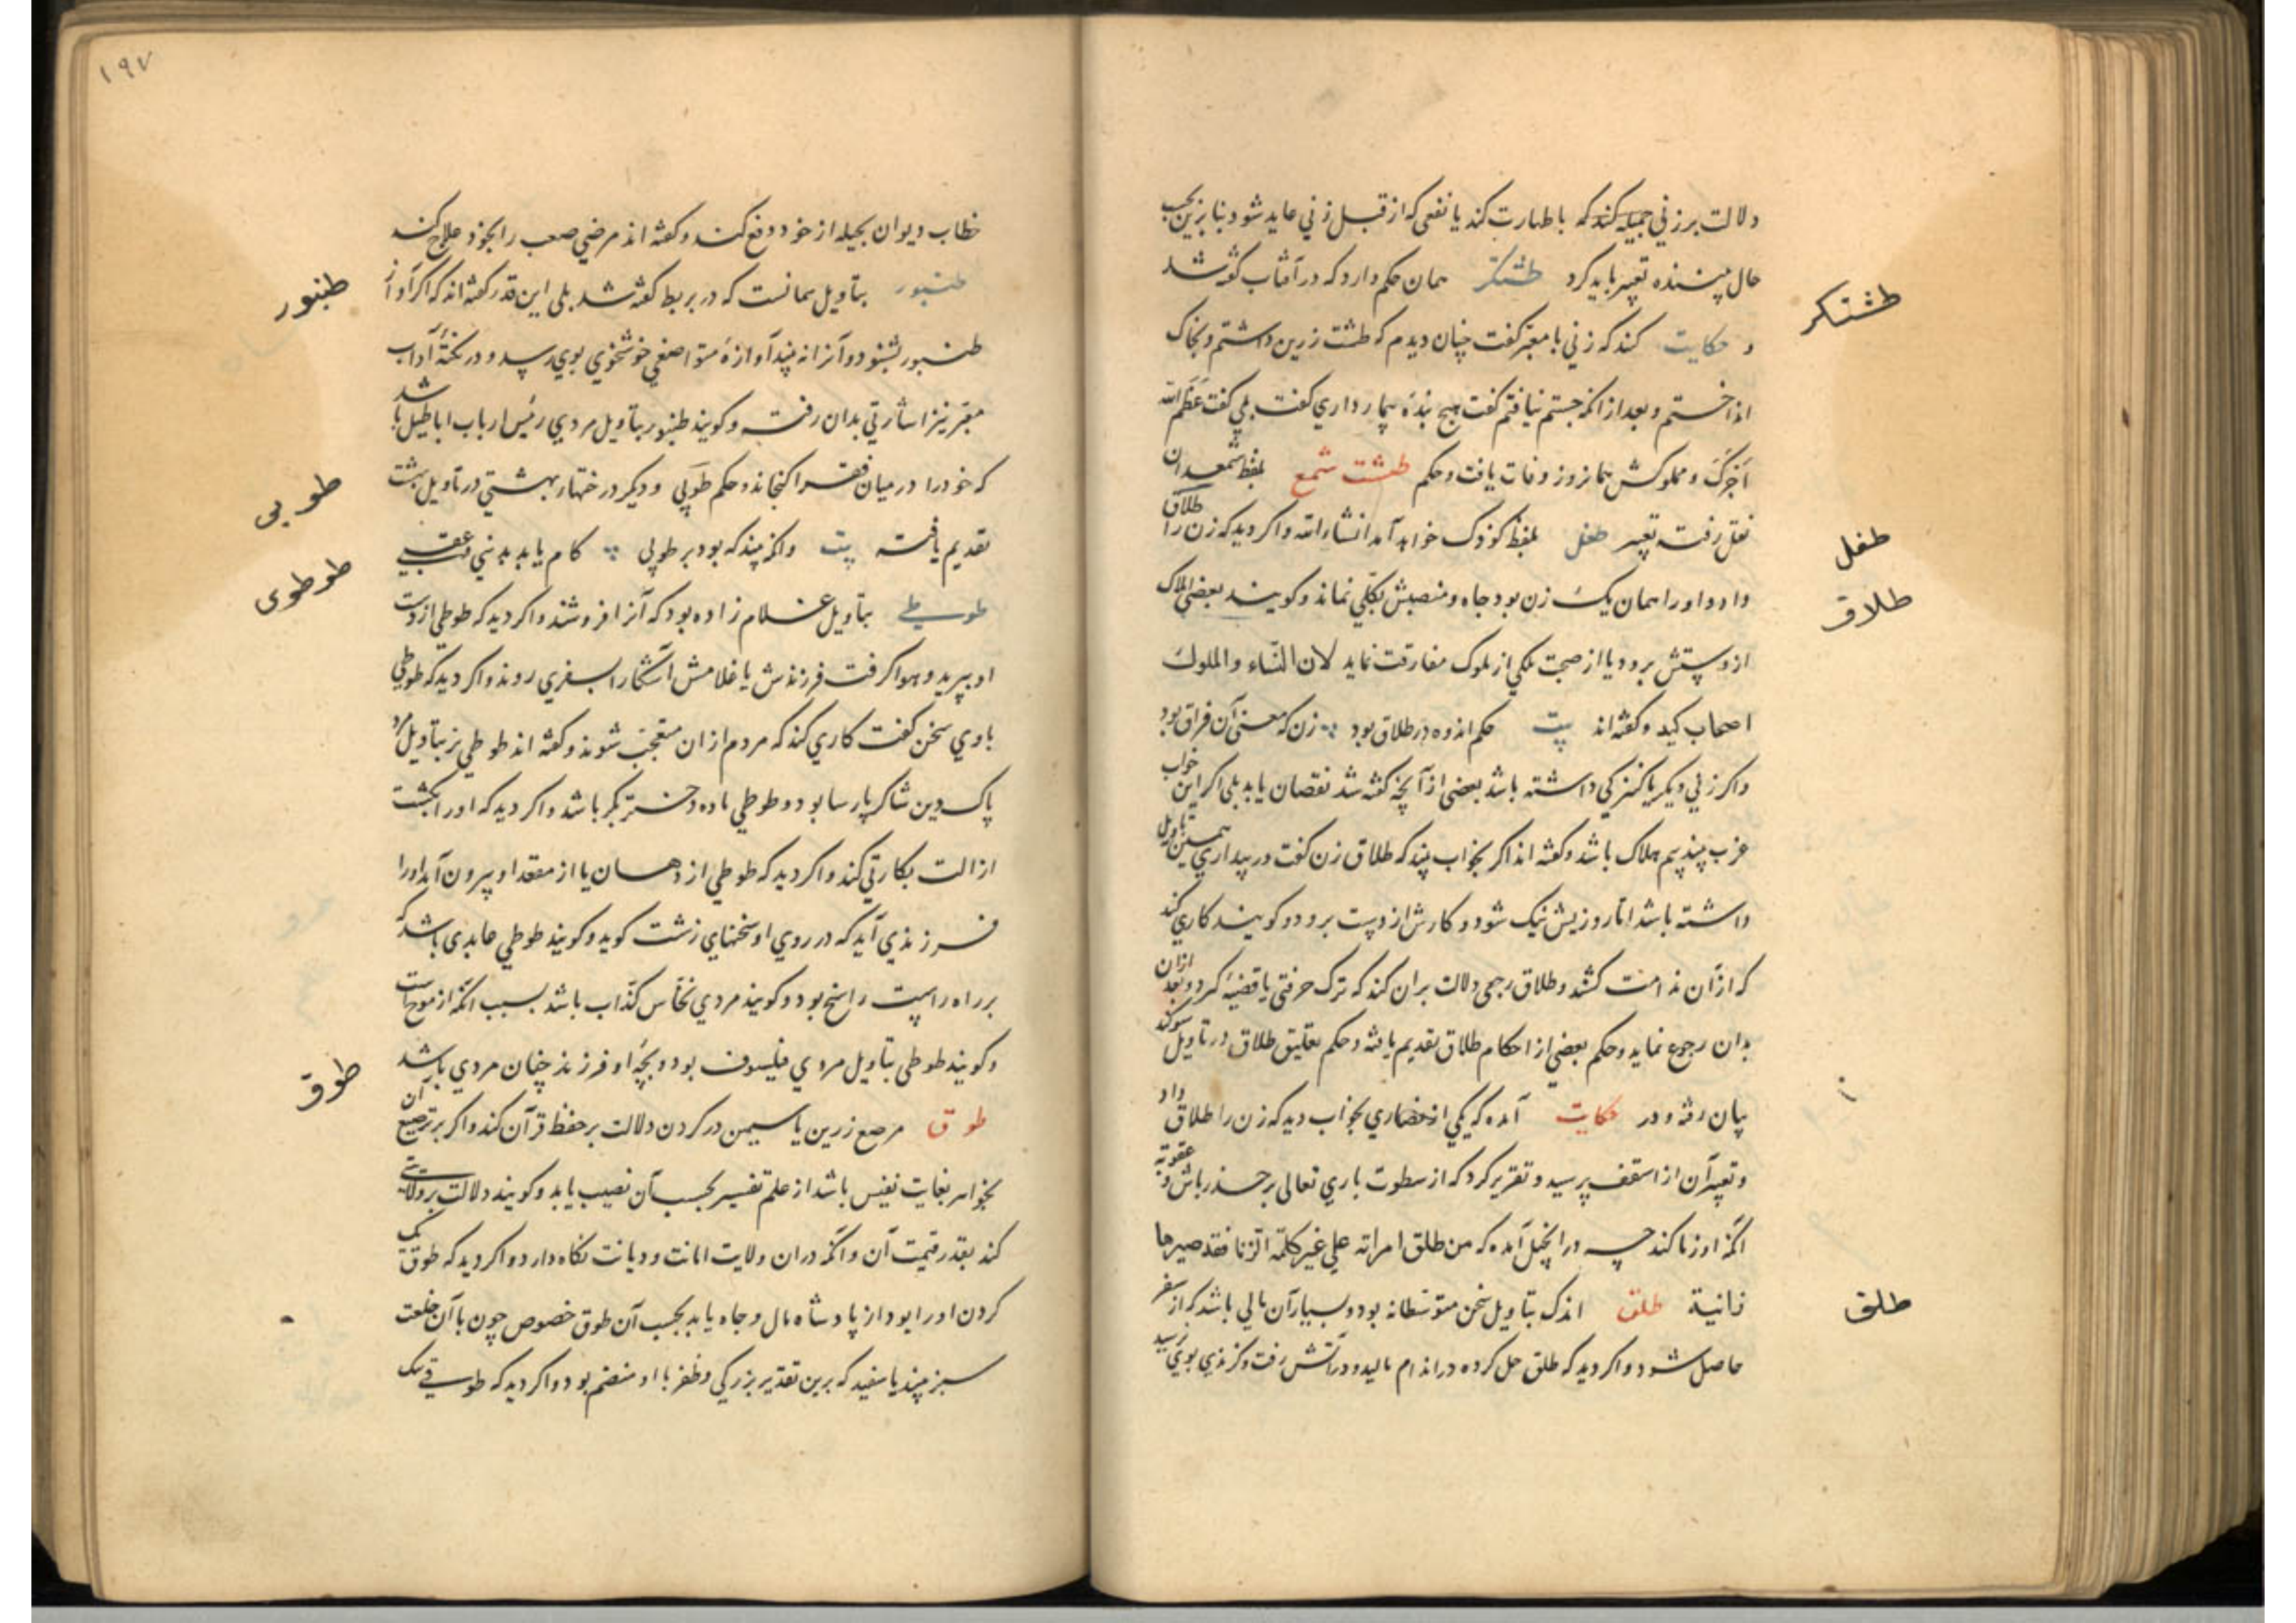 دلالت بر زنی جمیله کند که با طهارت کند یا نفعی که از قبل زنی عاید شود بنابرین بحسب
حال بیننده تعبیر باید کرد طشتگر همان حکم دارد که در آفتاب گفته شد
طشتکر
و حکایت کنند که زنی با معبر گفت چنان دیدم که طشت زرین داشتم و بخاک
انداختم و بعد از انکه جستم نیافتم گفت هیچ بنده بیمار داری گفت بلی گفت عظم الله
اجرک و مملوکش همانروز وفات یافت و حکم طشت شمع بلفظ شمعدان
نقل رفت تعبیر طفل بلفظ کوذک خواهد آمد انشاءالله و اکر دید که زن را طلاق
طفل
داد و او را همان یک زن بود جاه و منصبش بکلی نماند و کویند بعضی املاک
طلاق
از دستش برود یا از صحبت ملکی از ملوک مفارقت نماید لان النساء والملوک
اصحاب کید و کفته اند بیت حکم اندوه در طلاق بود زن که معنی آن فراق بود
واکر زنی دیکر یا کنیزکی داشته باشد بعضی از آنچه کفته شد نقصان یابد بلی اکر این خواب
عزب بیند بیم هلاک باشد و کفته اند اکر بخواب بیند که طلاق زن کفت در بیداری همین تاویل
داشته باشد اما روزیش نیک شود و کارش از دست برود و کویند کاری کند
که از آن ندامت کشد و طلاق رجعی دلالت بران کند که ترک حرفتی یا قضیه کرد و بعد ازان
بدان رجوع نماید و حکم بعضی از احکام طلاق تقدیم یافته و حکم تعلیق طلاق در تاویل سوکند
بیان رفته و در حکایت آمده که یکی از نصاری بخواب دید که زن را طلاق داد
و تعبیر آن از اسقف پرسید و تقریر کرد که از سطوت باری تعالی بر حذر باش و عقوبة
انکه او زنا کند چه در انجیل آمده که من طلق امراته علی غیر کلمة الزنا فقد صیرها
زانیة طلق اندک بتاویل سخن متوسطانه بود و بسیار آن مالی باشد که از سفر
طلق
حاصل شود و اکر دید که طلق حل کرده در اندام مالید و در آتش رفت و کزندی بوی نرسید
۱۹۷
خطاب دیوان بحیله از خود دفع کند و کفته اند مرضی صعب را بخود علاج کند
طنبور بتاویل همانست که در بربط کفته شد بلی این قدر کفته اند که اکر آواز
طنبور
طنبور بشنود و آنرا نه بیند آوازه متواضعی خوشخوی بوی رسد و در نکته آداب
معبر نیز اشارتی بدان رفت و کویند طنبور بتاویل مردی رئیس ارباب اباطیل باشد
که خود را در میان فقرا کنجاند و حکم طوبی و دیکر درختهاء بهشتی در تاویل بهشت
طوبی
تقدیم یافته بیت وانکه بیند که بود بر طوبی کام یابد بدنیی و عقبی
طوطی بتاویل غلام زاده بود که آنرا فروشند و اکر دید که طوطی از دست
طوطوی
او بپرید و هوا کرفت فرزندش یا غلامش آشکارا بسفری روند و اکر دید که طوطی
با وی سخن کفت کاری کند که مردم ازان متعجب شوند و کفته اند طوطی نر بتاویل مرد
پاک دین شاکر پارسا بود و طوطی ماده دختر بکر باشد و اکر دید که او را بکشت
ازالت بکارتی کند و اکر دید که طوطی از دهان یا از مقعد او بیرون آید او را
فرزندی آید که در روی او سخنهای زشت کوید و کویند طوطی عابدی باشد که
بر راه راست راسخ بود و کویند مردی نخاس کذاب باشد بسبب انکه
و کویند طوطی بتاویل مردی فیلسوف بود و بچه او فرزند چنان مردی باشد
طوق مرصع زرین یا سیمین در کردن دلالت بر حفظ قرآن کند و اکر ترصیع آن
طوق
بجواهر بغایت نفیس باشد از علم تفسیر بحسب آن نصیب یابد و کویند دلالت بر ولایتی
کند بقدر قیمت آن و انکه دران ولایت امانت و دیانت نکاه دارد و اکر دید که طوق
کردن او را بود از پادشاه مال و جاه یابد بحسب آن طوق خصوص چون با آن خلعت
سبز بیند یا سفید که برین تقدیر بزرکی و ظفر با او منضم بود و اکر دید که طوقی